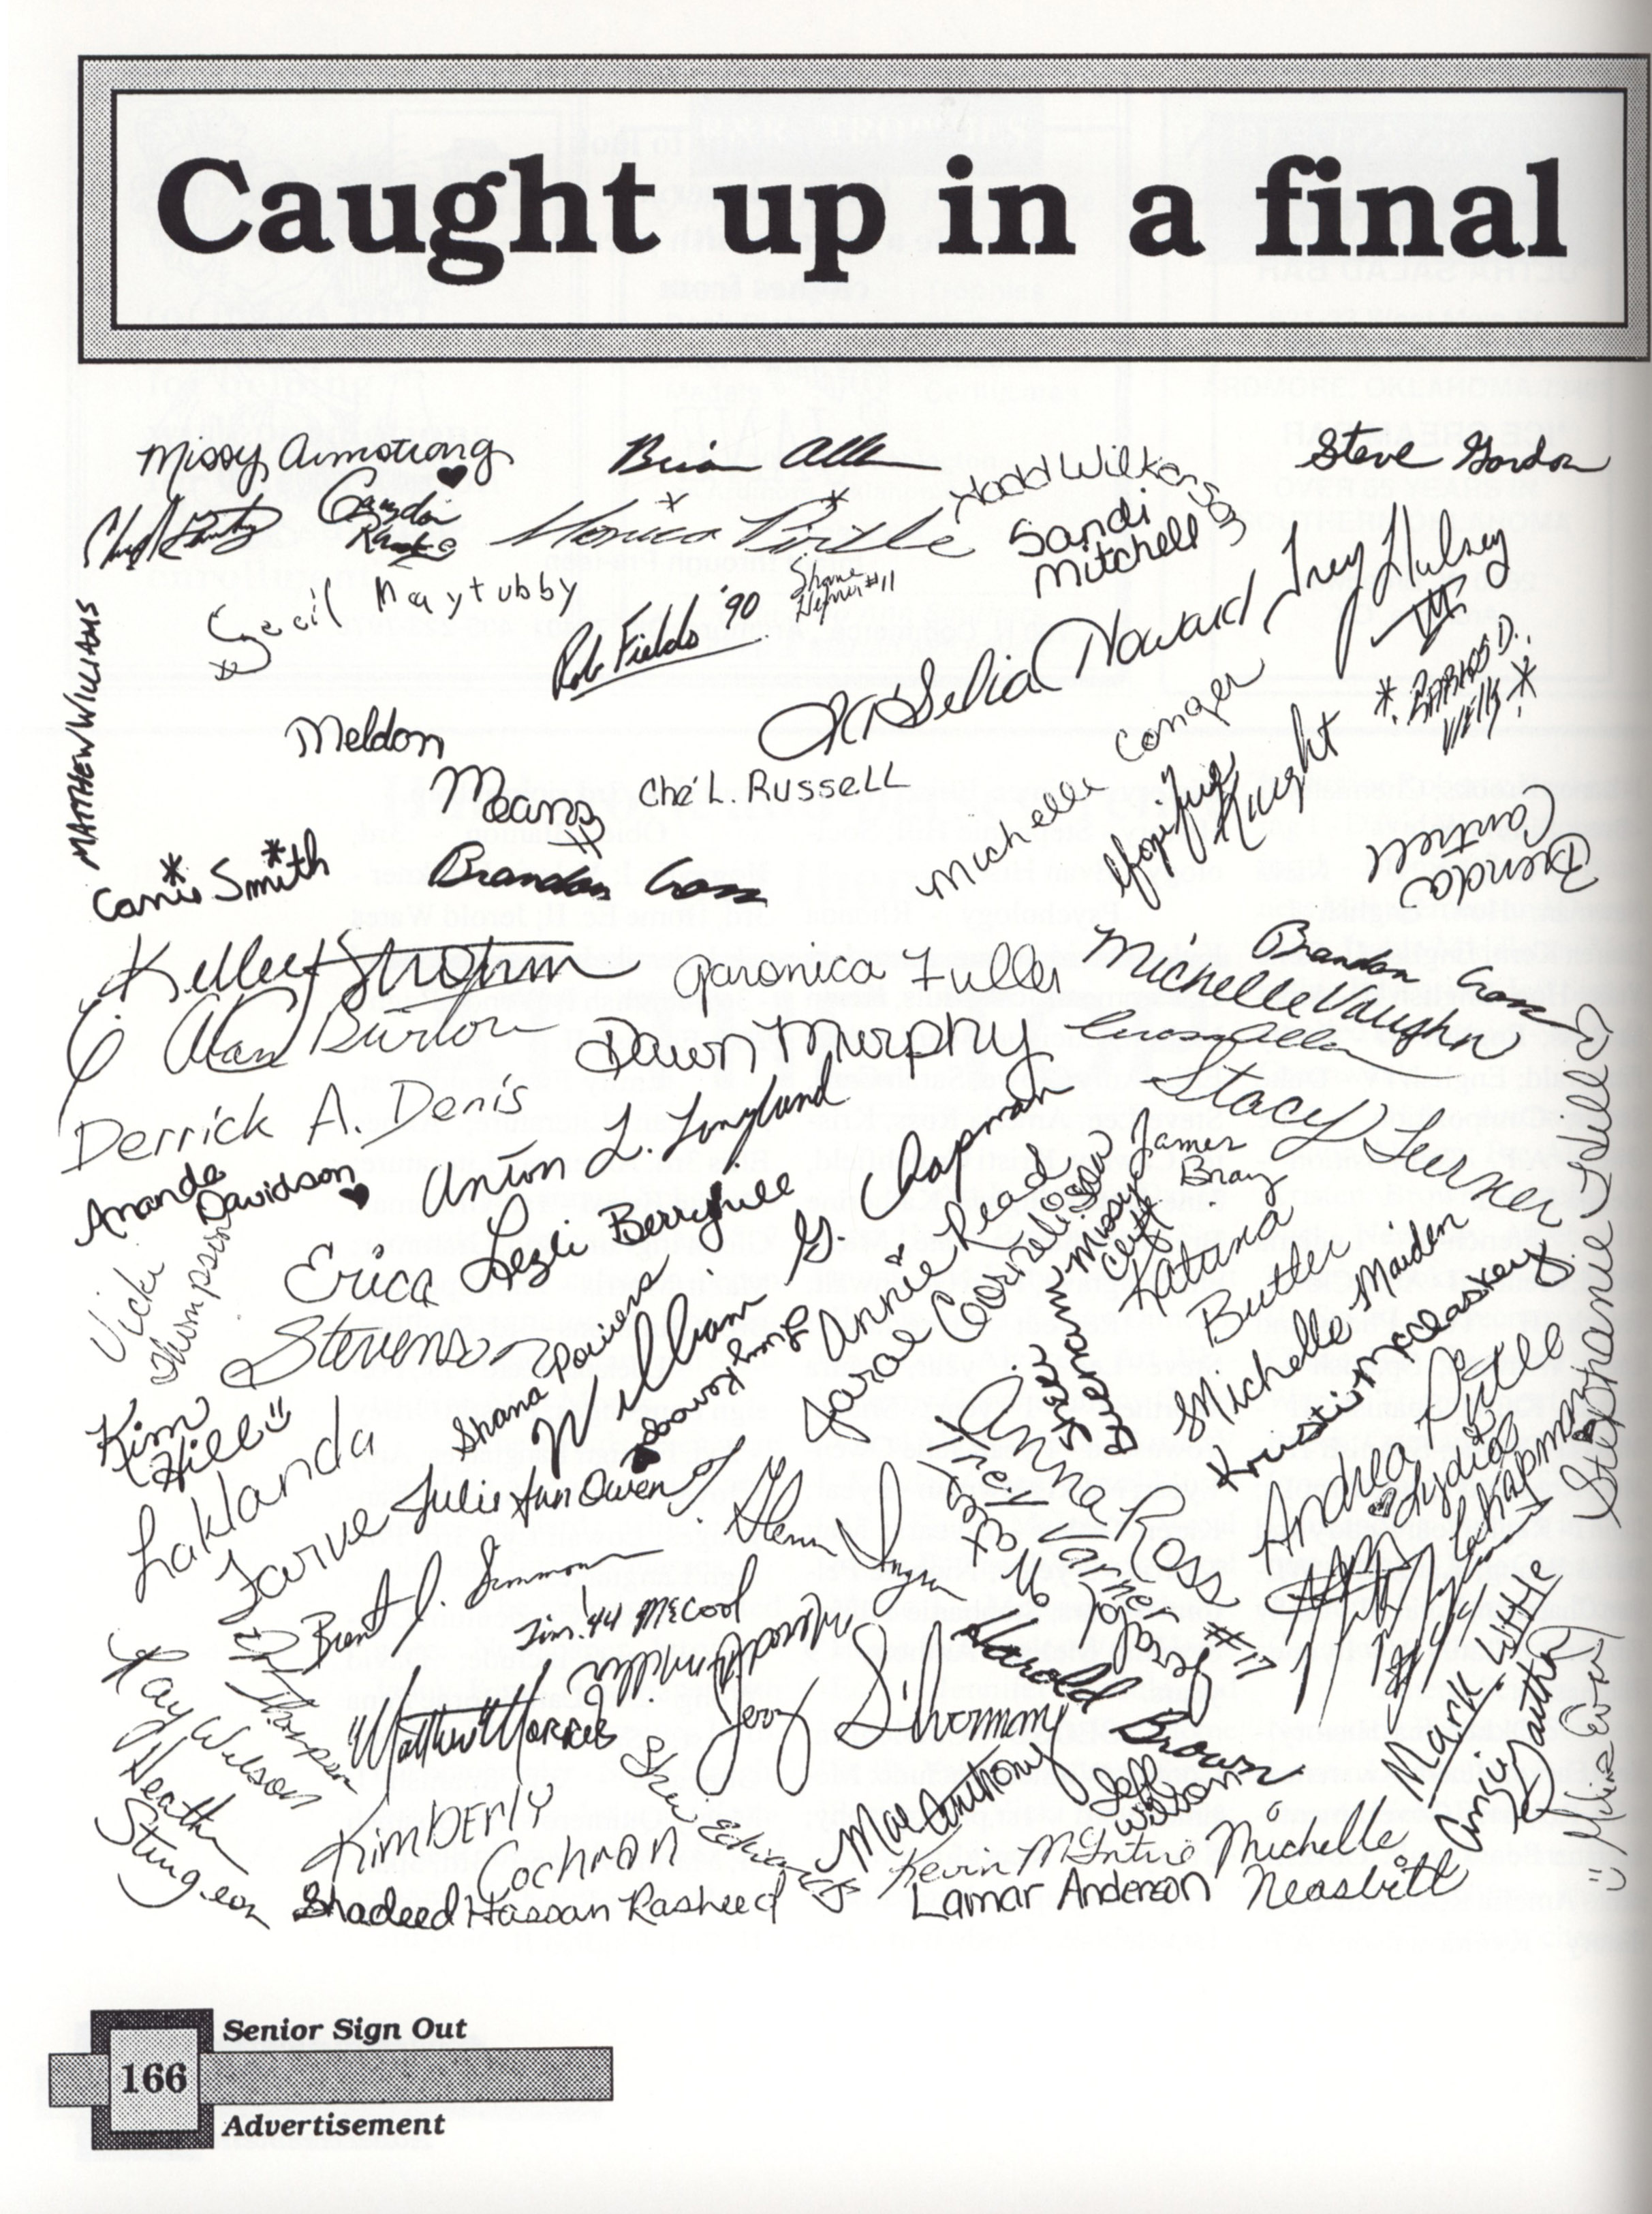 Caught up in a final
Missy Armstrong
Brian Allen
Todd Wilkerson
Steve Gordon
Monica Pirtle
Sandi
Mitchell
Trey Hulsey
III
Cecil Maytubby
Rob Fields '90
Shane
#11
LaSelia Howard
MATTHEW WILLIAMS
Meldon
Means
Ché L. RUSSELL
Michelle Conger
Knight
Brenda
Cantrell
Smith
Brandon Cross
Kellee Strom
Qaronica Fuller
Michelle Vaughn
Brandon Cross
C. Alan Burton
Dawn Murphy
Allen
Stacy Turner
Derrick A. Denis
Anton L. Longland
Amanda
Davidson
Lesli Berryhill
G. Chapman
James
Bray
Missy
Clift
Vicki
Thompson
Erica
Stevens
Shana Powers
William
Annie Read
Sarae Cornelious
Katrina
Butler
Michelle Maiden
Kristin McClaskey
Stephanie Tell
Kim
Hill
Laklanda
Tarver
Julie Ann Owen
J. Glenn Ingram
Anna Ross
Trey Varner
#17
Andrea Patee
Brent J. Simmons
Tim 44 McCool
Harold Brown
Thompson
Kay Wilson
"Matthew" Morris
Jerry Silverman
Mark Little
Angie Gauthier
Heather
Sturgeon
Kimberly
Cochran
Mac Anthony
Jeff
Wilson
Kevin McIntire
Michelle
Neasbitt
Shadeed Hassan Rasheed
Lamar Anderson
Senior Sign Out
166
Advertisement